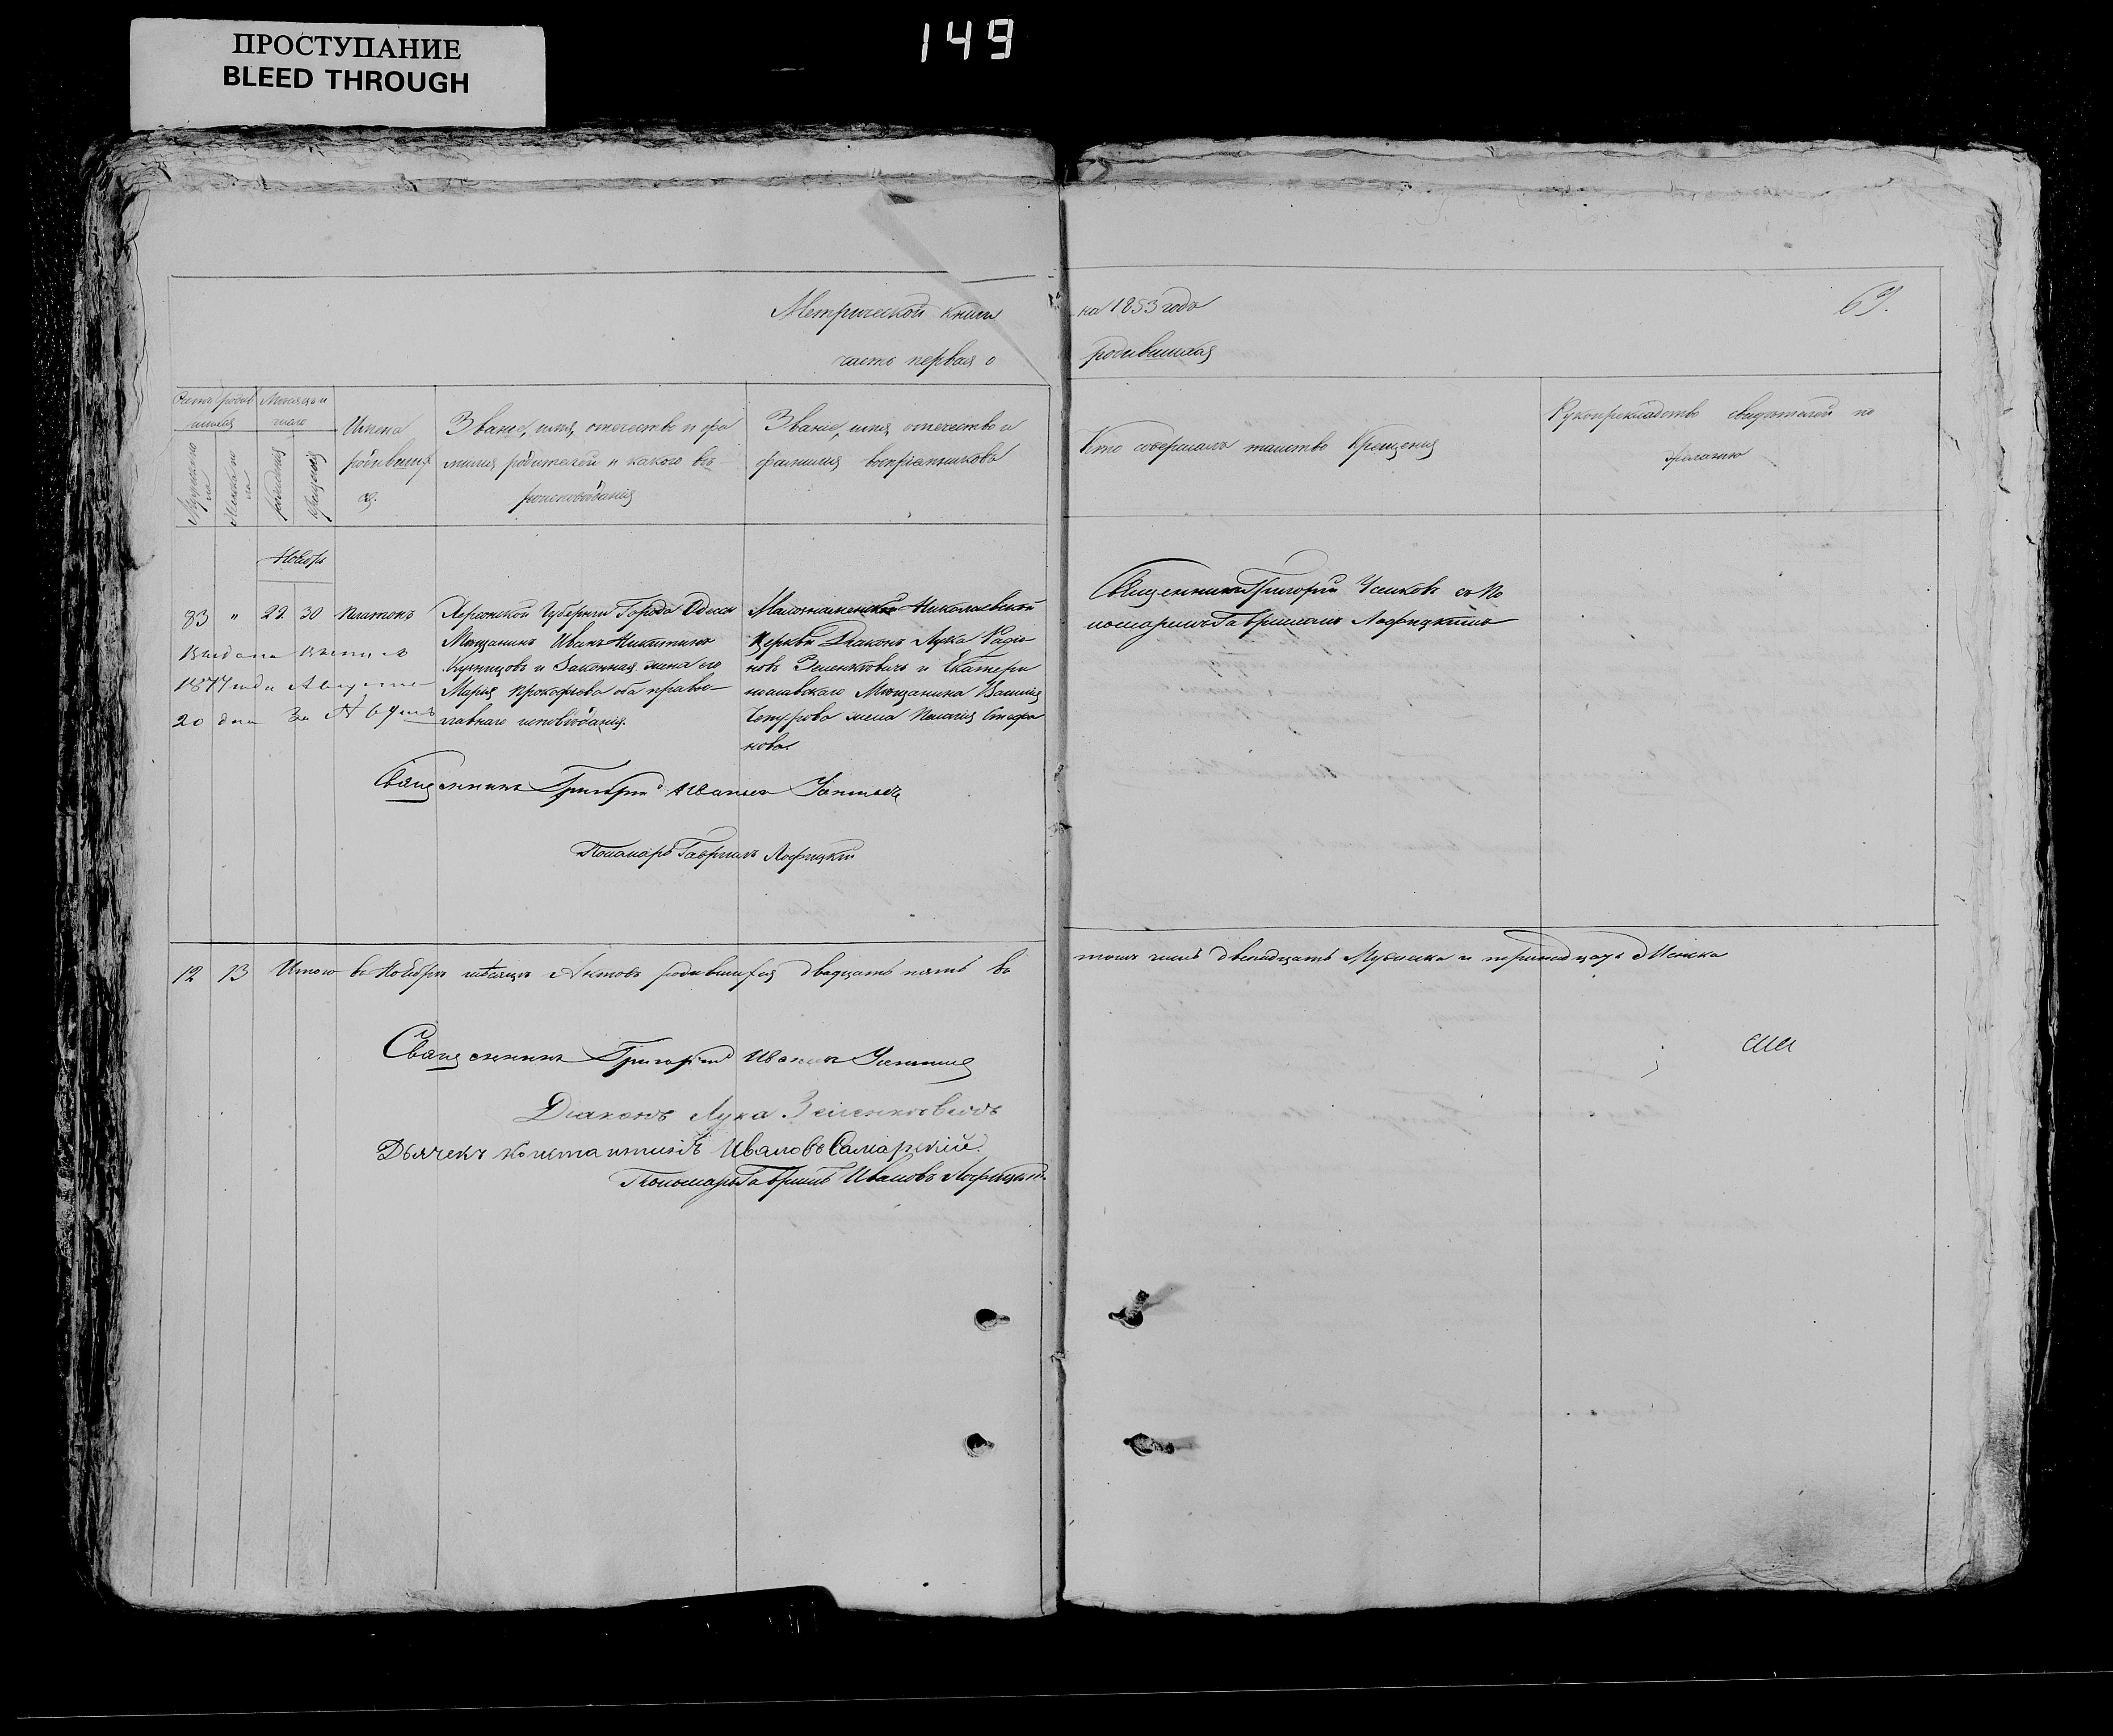 ПРОСТУПАНИЕ
BLEED THROUGH
149
Метрической книги
на 1853 годъ
69.
часть первая о
родившихся
Счетъ родив
шихся
Месяцъ и
число
Мужеска по
ла
Женска по
ла
рождения
Крещения
Имена
родивших
ся.
Званіе, имя, отчество и фа
милия родителей и какого въ
роисповѣданія
Званіе, имя, отчество и
фамилия воспріемниковъ
Кто совершалъ таинство Крещения
Рукоприкладство свидетелей по
желанію
Ноябрь
83 " 22. 30 Платонъ
Херсонской Губернии Города Одессы
Мѣщанинъ Иванъ Никитинъ
и Законная жена его
Марья Прокофьева оба право-
славнаго исповѣданія.
Николаевской
Церкви Діаконъ Лука Радіо
новъ Зеленкевичъ и Екатери
нославскаго Мѣщанина Василия
жена Пелагія Стефа
нова.
Священникъ Григорій съ По
номаремъ Гавриломъ
Выдана
1877 года Августа
20 дня За №
Священникъ Григорій Ивановъ
Пономарь Гавриилъ
12 13 Итого въ Ноябрѣ мѣсяцѣ Актовъ родившихся двадцать пять въ
томъ числѣ двенадцать Мужеска и тринадцать Женска
Священникъ Григорій Иванов
Діаконъ Лука Зеленкевичъ
Дьячекъ Константинъ Ивановъ Самарскій.
Пономарь Гавриилъ Ивановъ